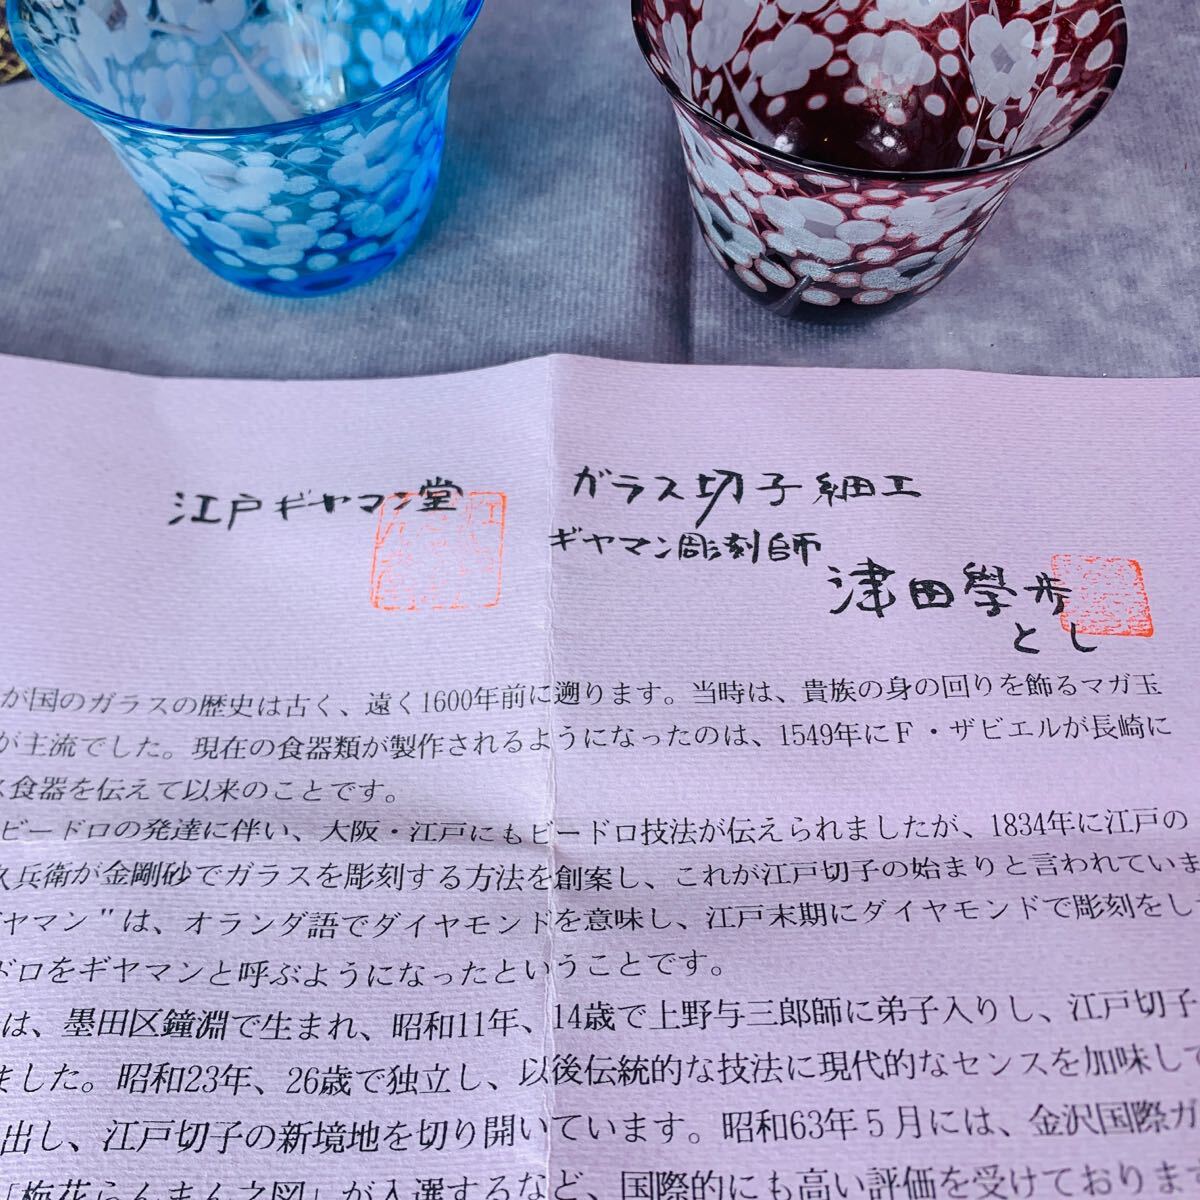 江戸ギヤマン堂
ガラス切子細工
ギヤマン彫刻師
津田學歩
とし
が国のガラスの歴史は古く、遠く1600年前に遡ります。当時は、貴族の身の回りを飾るマガ玉
が主流でした。現在の食器類が製作されるようになったのは、1549年にF・ザビエルが長崎に
ス食器を伝えて以来のことです。
ビードロの発達に伴い、大阪・江戸にもビードロ技法が伝えられましたが、1834年に江戸の
久兵衛が金剛砂でガラスを彫刻する方法を創案し、これが江戸切子の始まりと言われていま
ギヤマン"は、オランダ語でダイヤモンドを意味し、江戸末期にダイヤモンドで彫刻をし
ドロをギヤマンと呼ぶようになったということです。
は、墨田区鐘淵で生まれ、昭和11年、14歳で上野与三郎師に弟子入りし、江戸切子
ました。昭和23年、26歳で独立し、以後伝統的な技法に現代的なセンスを加味して
出し、江戸切子の新境地を切り開いています。昭和63年5月には、金沢国際ガ
「梅花らんまん之図」が入選するなど、国際的にも高い評価を受けておりま